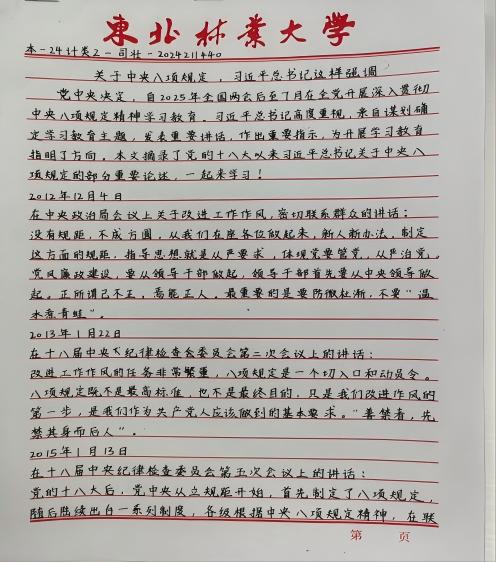 東北林業大學
本-24计类2-司壮-2024211440
关于中央八项规定，习近平总书记这样强调
党中央决定，自2025年全国两会后至7月在全党开展深入贯彻
中央八项规定精神学习教育。习近平总书记高度重视，亲自谋划确
定学习教育主题，发表重要讲话，作出重要指示，为开展学习教育
指明了方向。本文摘录了党的十八大以来习近平总书记关于中央八
项规定的部分重要论述，一起来学习！
2012年12月4日
在中央政治局会议上关于改进工作作风，密切联系群众的讲话：
没有规距，不成方圆，从我们在座各位做起来，新人新办法，制定
这方面的规距，指导思想就是从严要求，体现党要管党，从严治党。
党风廉政建设，要从领导干部做起，领导干部首先要从中央领导做
起。正所谓己不王，焉能正人。最重要的是要防微杜渐，不要"温
水煮青蛙"。
2013年1月22日
在十八届中央纪律检查委员会第二次会议上的讲话：
改进工作作风的任务非常繁重，八项规定是一个切入口和动员令。
八项规定既不是最高标准，也不是最终目的，只是我们改进作风的
第一步，是我们作为共产党人应该做到的基本要求。"善禁者，先
禁其身而后人"。
2015年1月13日
在十八届中央纪律检查委员会第五次会议上的讲话：
党的十八大后，党中央从立规距开始，首先制定了八项规定，
随后陆续出台一系列制度，各级根据中央八项规定精神，在联
第 页